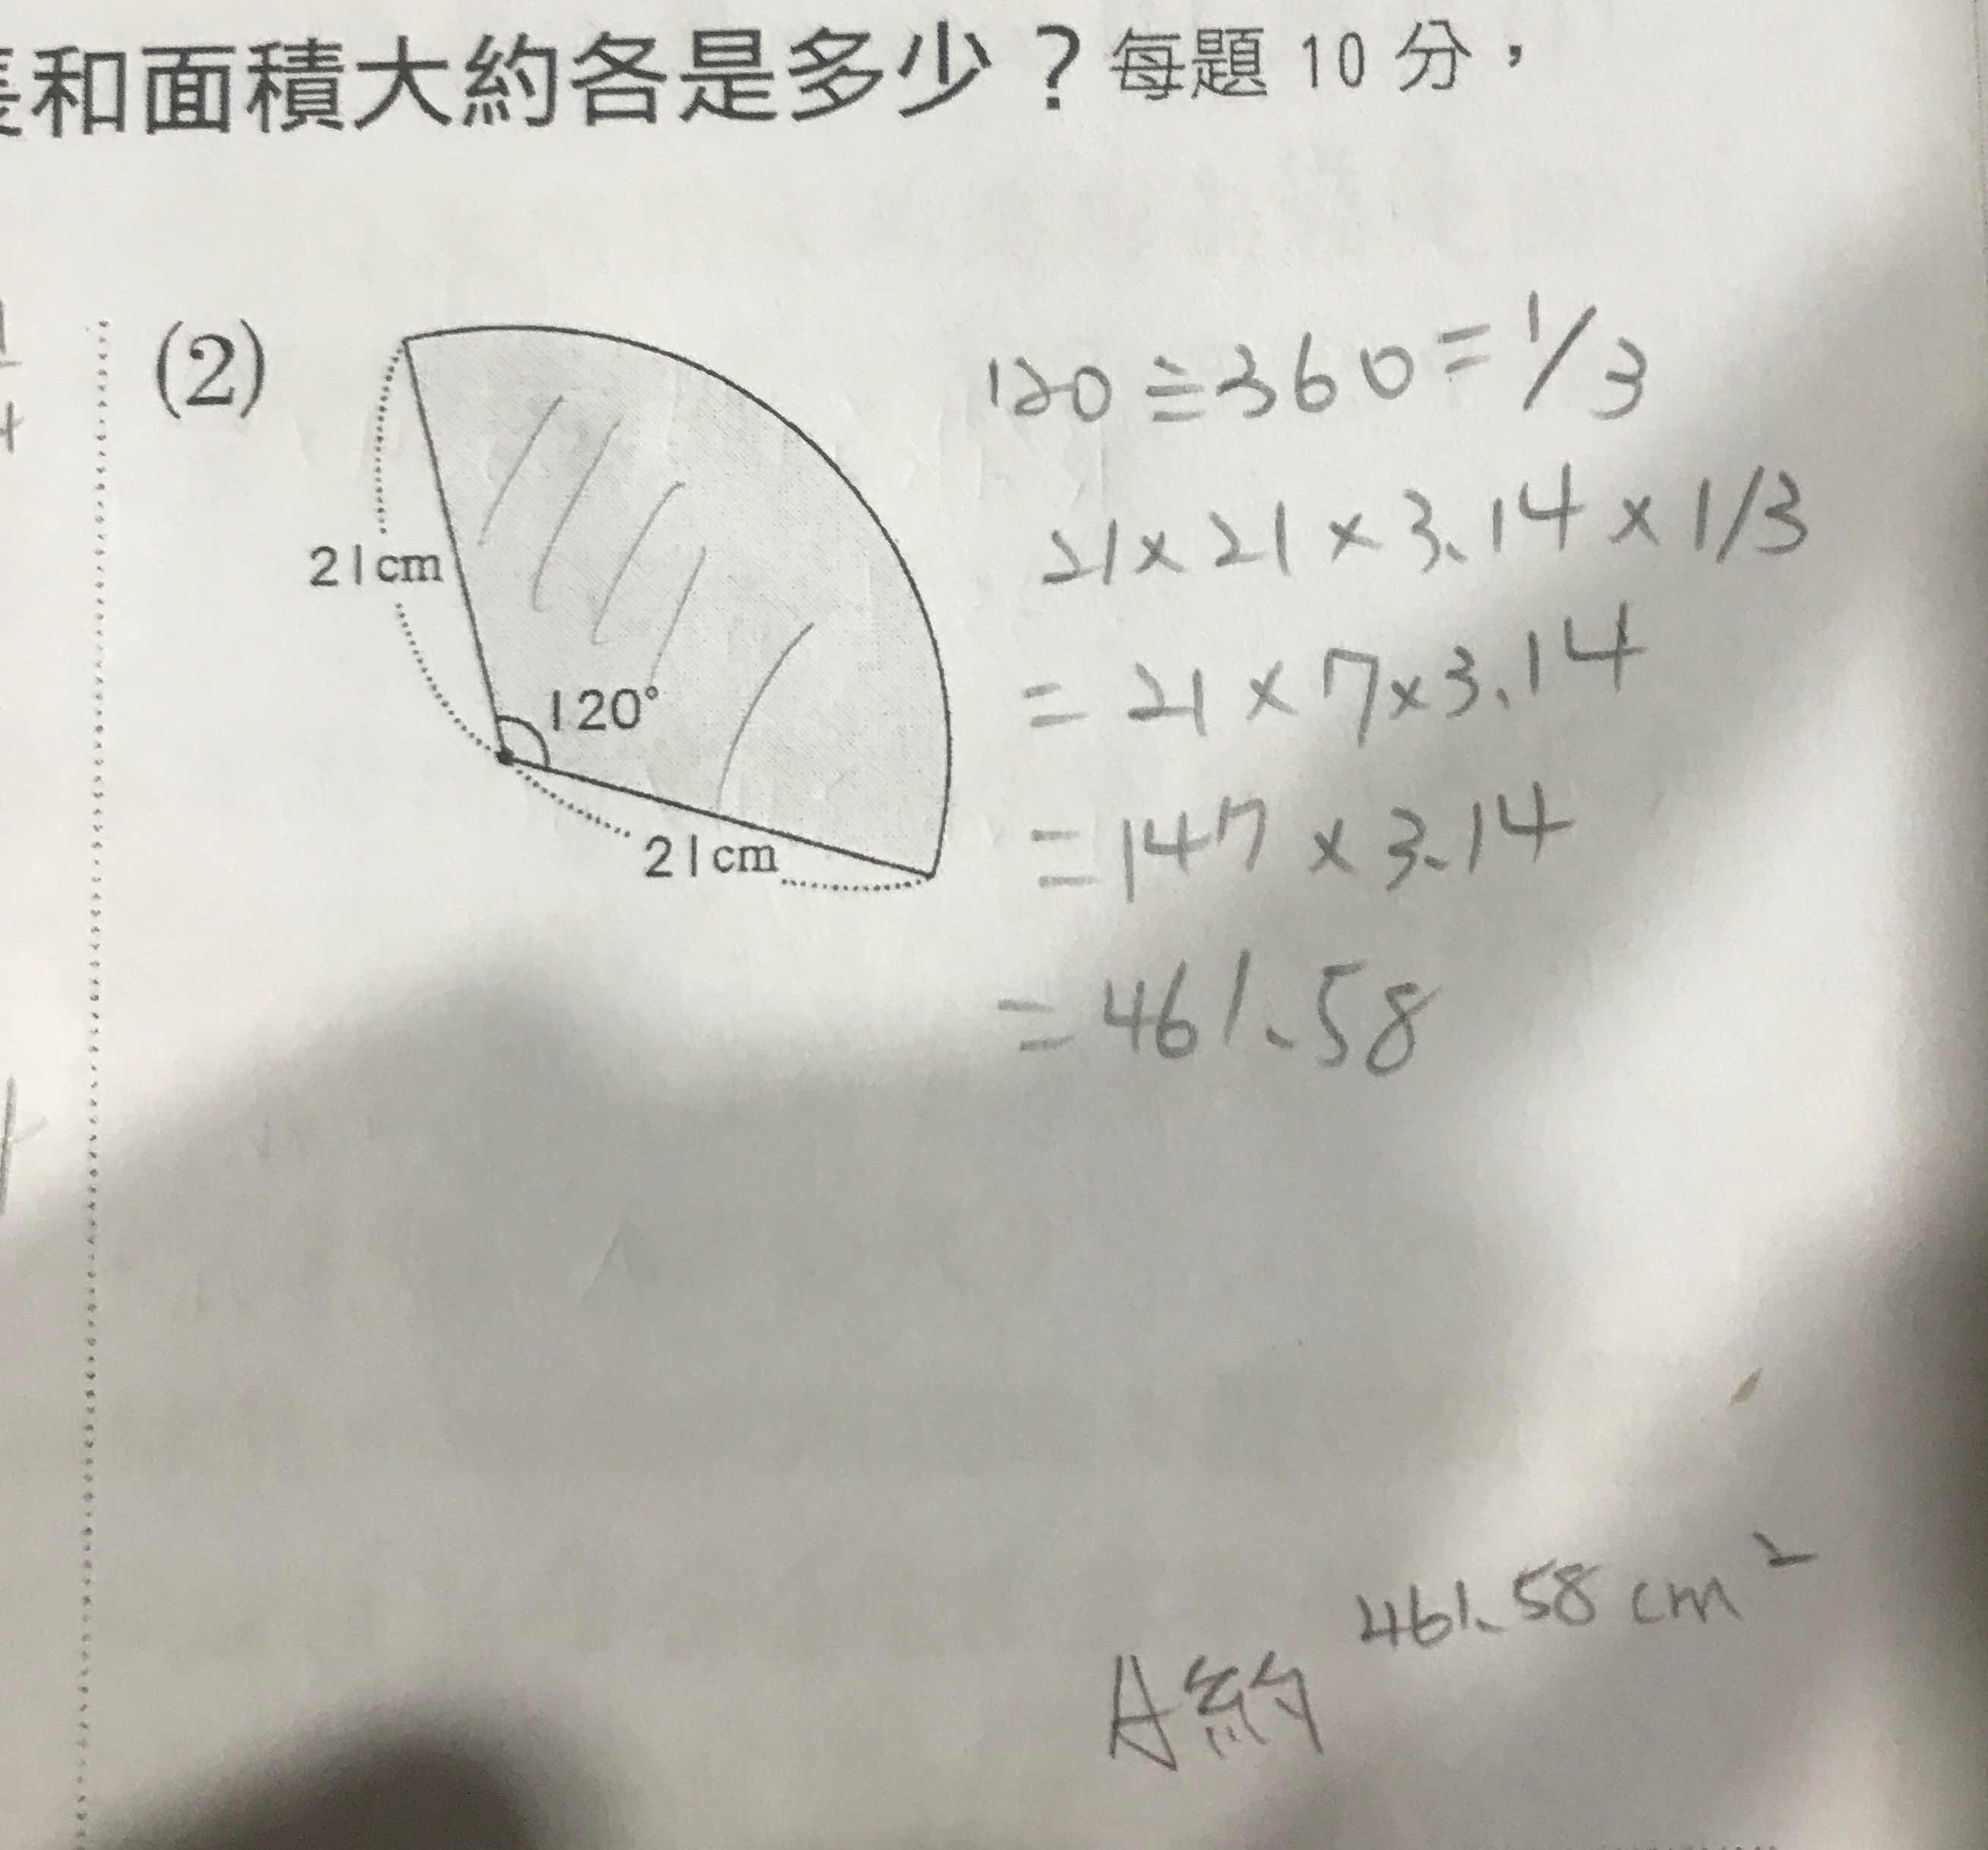 長和面積大約各是多少？每題 10 分，
(2)
21cm
120°
21cm
120÷360=1/3
21×21×3.14×1/3
=21×7×3.14
=147×3.14
=461.58
A約 461.58 cm²